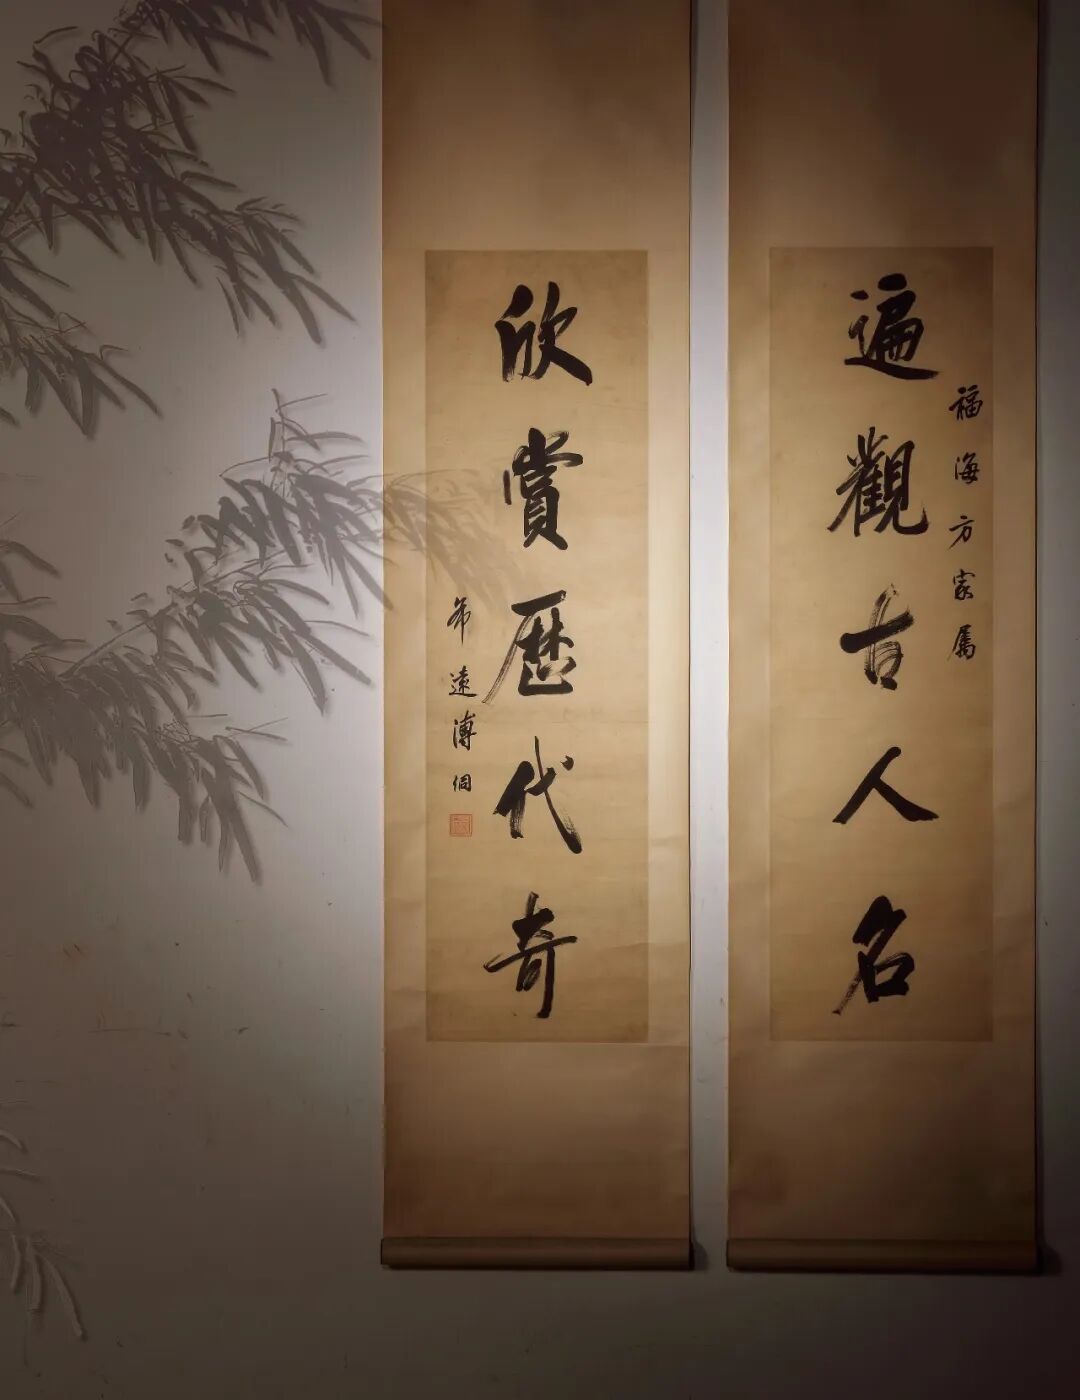 遍觀古人名
福海方家属
欣賞歷代奇
希遠溥侗